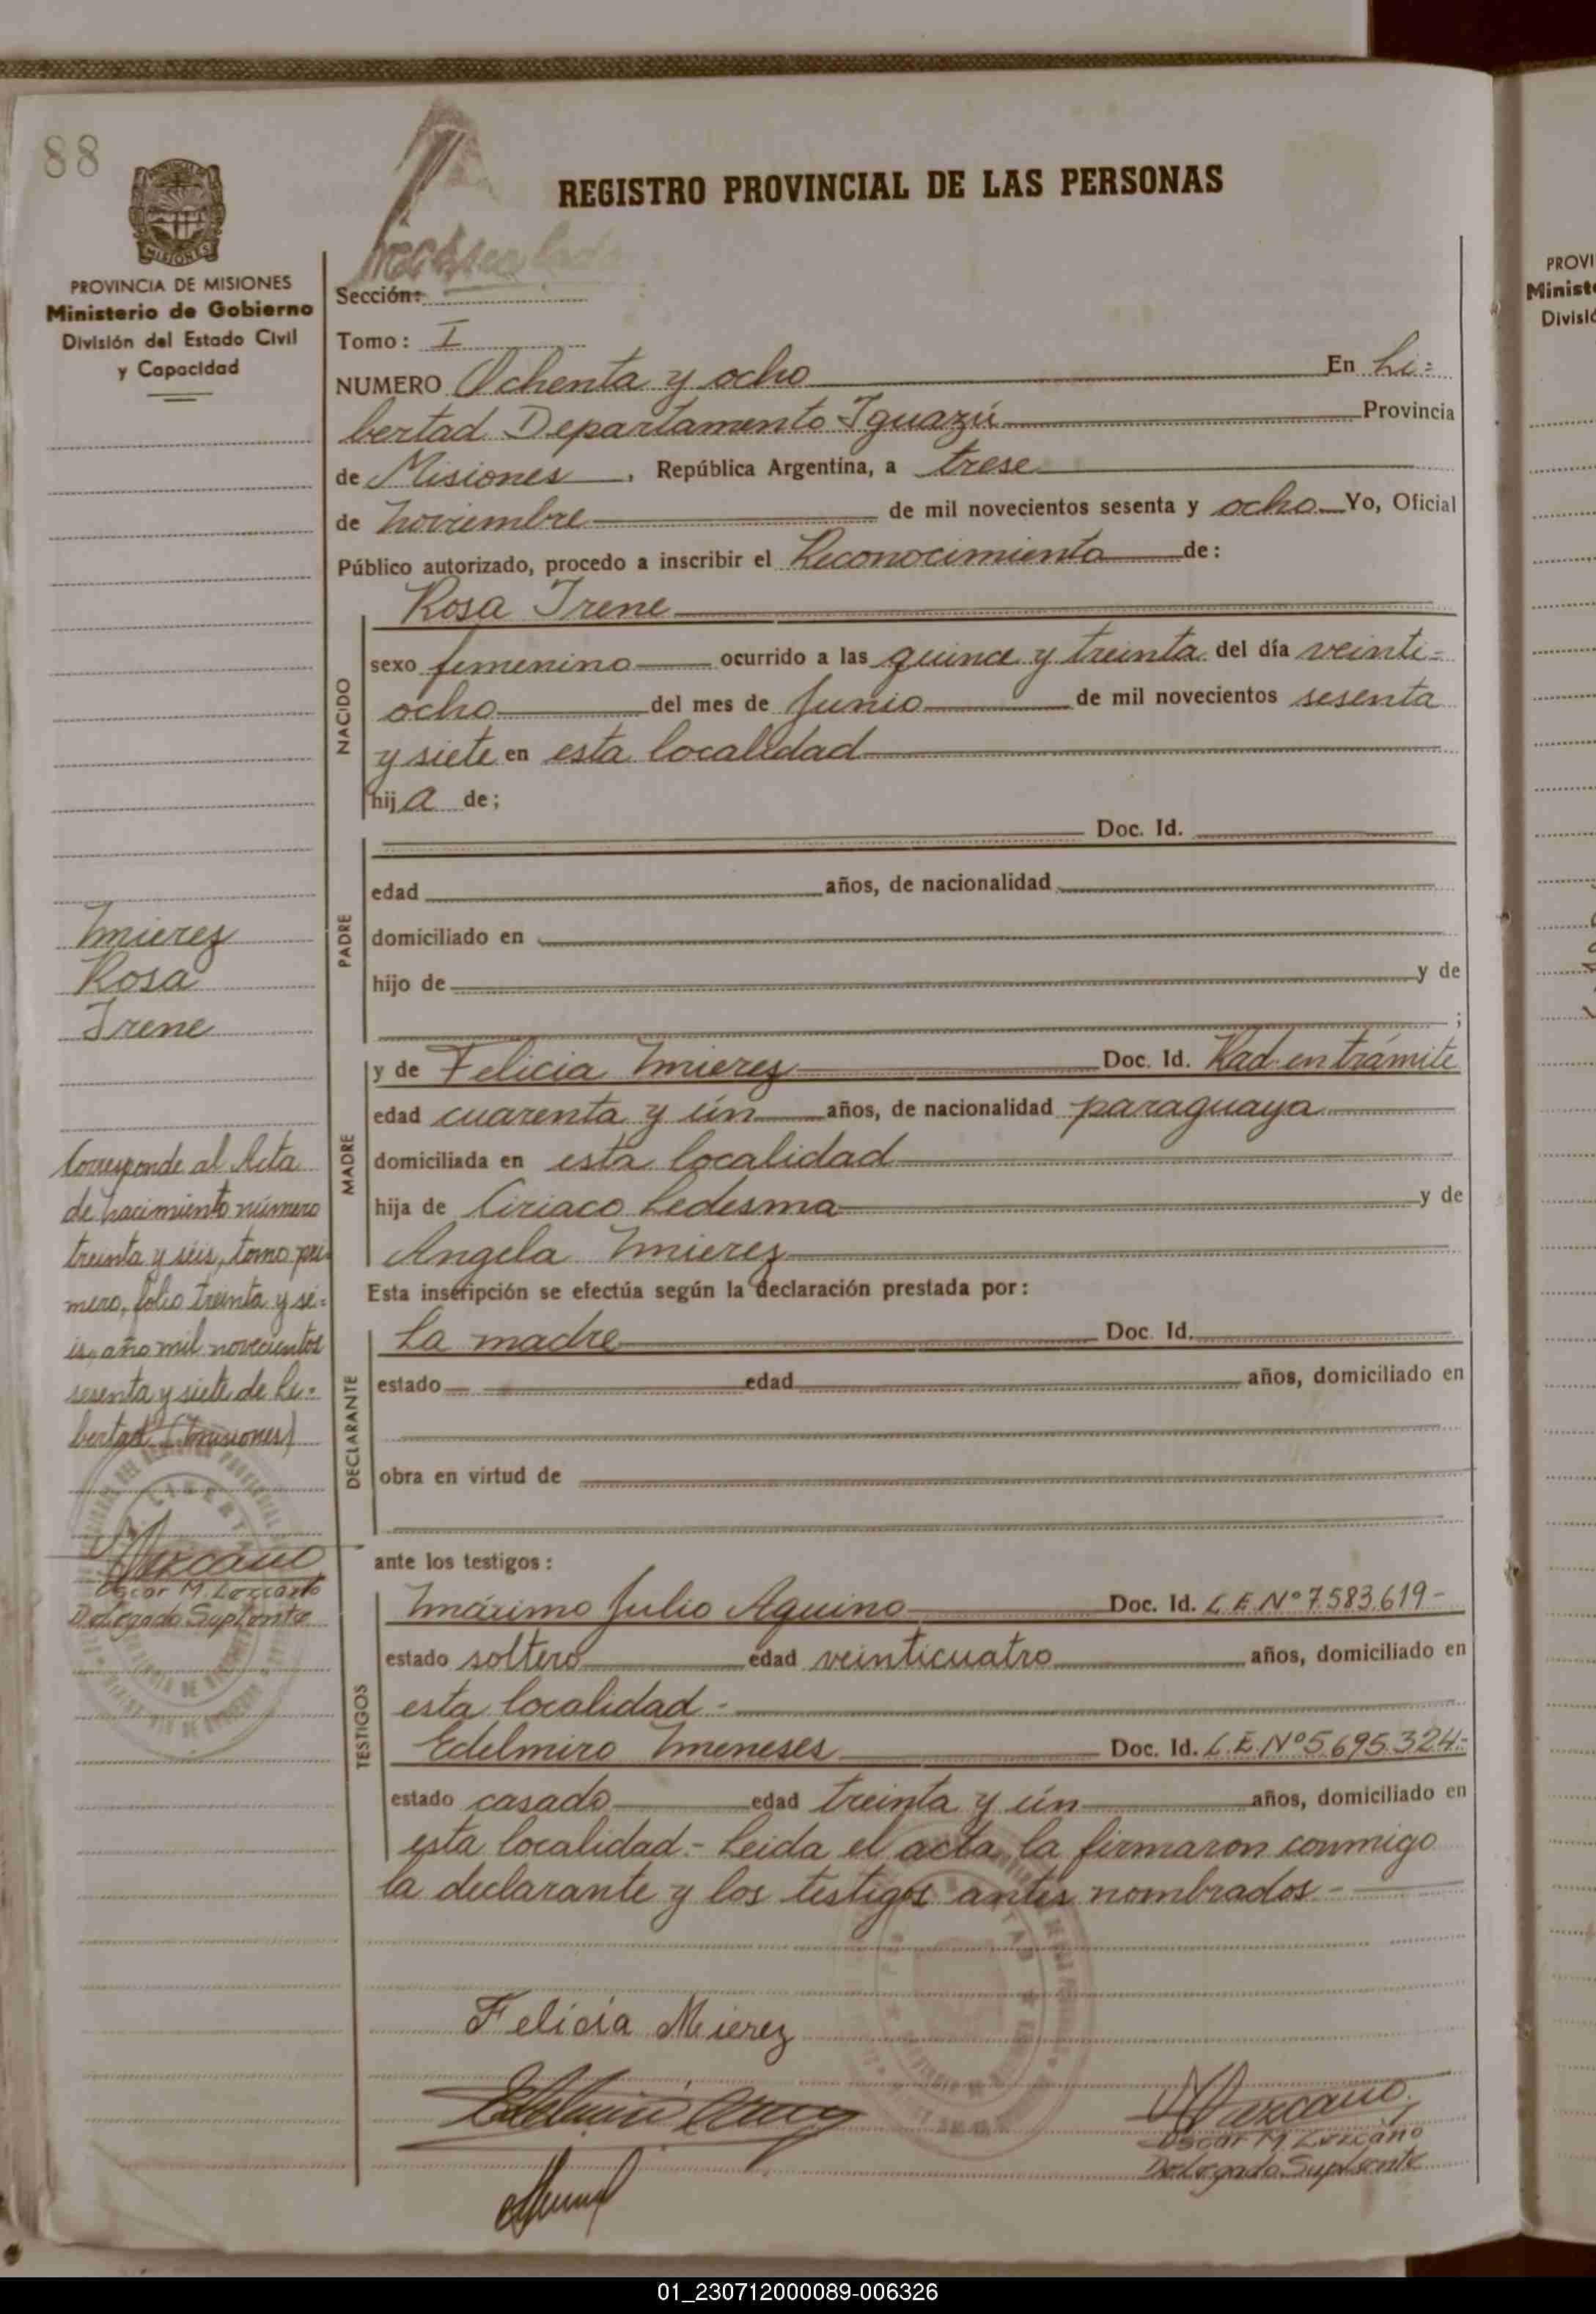 88
REGISTRO PROVINCIAL DE LAS PERSONAS
PROVINCIA DE MISIONES
Ministerio de Gobierno
División del Estado Civil
y Capacidad
Sección:
Tomo: I
NUMERO Ochenta y ocho En Li=
bertad Departamento Iguazú Provincia
de Misiones, República Argentina, a trese
de noviembre de mil novecientos sesenta y ocho Yo, Oficial
Público autorizado, procedo a inscribir el Reconocimiento de:
NACIDO
Rosa Irene
sexo femenino ocurrido a las quince y treinta del día veinti=
ocho del mes de Junio de mil novecientos sesenta
y siete en esta localidad
hija de;
PADRE
Doc. Id.
edad años, de nacionalidad
domiciliado en
hijo de y de
;
Mierez
Rosa
Irene
MADRE
y de Felicia Mierez Doc. Id. Rad en trámite
edad cuarenta y ún años, de nacionalidad paraguaya
domiciliada en esta localidad
hija de Ciriaco Ledesma y de
Angela Mierez
Corresponde al Acta
de nacimiento número
treinta y séis, tomo pri=
mero, folio treinta y sé=
is, año mil novecientos
sesenta y siete de Li=
bertad (Misiones)
Oscar M. Lezcano
Delegado Suplente
Esta inscripción se efectúa según la declaración prestada por:
DECLARANTE
La madre Doc. Id.
estado edad años, domiciliado en
obra en virtud de
ante los testigos:
TESTIGOS
Máximo Julio Aquino Doc. Id. L.E.Nº 7.583.619-
estado soltero edad veinticuatro años, domiciliado en
esta localidad-
Edelmiro Meneses Doc. Id. L.E.Nº 5.695.324-
estado casado edad treinta y ún años, domiciliado en
esta localidad.- Leida el acta, la firmaron conmigo
la declarante y los testigos antes nombrados-
Felicia Mierez
Oscar M. Lezcano
Delegado Suplente
PROVI
Ministe
Divisió
01_230712000089-006326